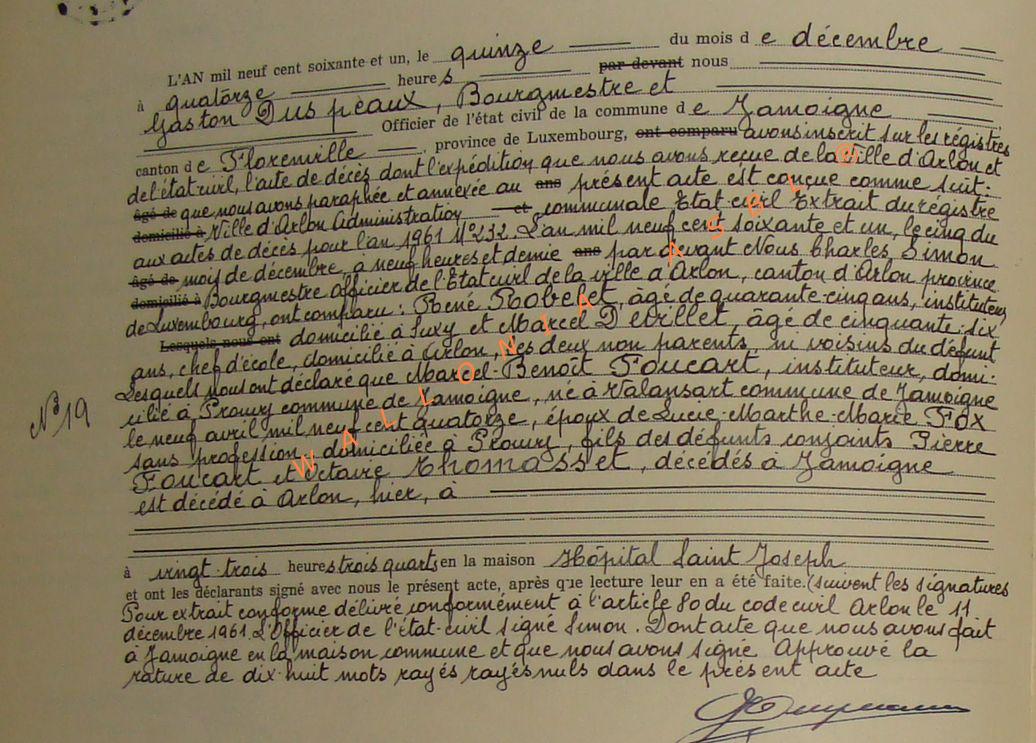 L'AN mil neuf cent soixante et un, le quinze du mois de décembre
à quatorze heures par devant nous
Gaston Duspeaux, Bourgmestre et
Officier de l'état civil de la commune de Jamoigne
canton de Florenville, province de Luxembourg, ont comparu avons inscrit sur les régistres
de l'état civil, l'acte de décès dont l'expédition que nous avons reçue de la Ville d'Arlon et
âgé de que nous avons paraphée et annexée au ans présent acte est conçue comme suit:
domicilié à Ville d'Arlon Administration et communale Etat-civil Extrait du régistre
aux actes de décès pour l'an 1961 N°232. L'an mil neuf cent soixante et un, le cinq du
âgé de mois de décembre, à neuf heures et demie ans par devant Nous Charles Simon
domicilié à Bourgmestre Officier de l'Etat civil de la ville d'Arlon, canton d'Arlon province
de Luxembourg, ont comparu: René Robelet, âgé de quarante-cinq ans, instituteur,
Lesquels nous ont domicilié à Suxy et Marcel Devillet, âgé de cinquante-six
ans, chef d'école, domicilié à Arlon, les deux non parents, ni voisins du défunt
Lesquels nous ont déclaré que Marcel-Benoît Foucart, instituteur, domi-
cilié à Prouvy commune de Jamoigne, né à Valansart commune de Jamoigne
N° 19
le neuf avril mil neuf cent quatorze, époux de Lucie-Marthe-Marie Fox
sans profession, domiciliée à Prouvy, fils des défunts conjoints Pierre
Foucart et Octavie Thomasset, décédés à Jamoigne
est décédé à Arlon, hier, à
à vingt-trois heures trois quarts en la maison Hôpital Saint Joseph
et ont les déclarants signé avec nous le présent acte, après que lecture leur en a été faite. (suivent les signatures
Pour extrait conforme délivré conformément à l'article 80 du code civil Arlon le 11
décembre 1961. L'Officier de l'état-civil signé Simon. Dont acte que nous avons fait
à Jamoigne en la maison commune et que nous avons signé Approuvé la
rature de dix-huit mots rayés rayés nuls dans le présent acte
WALLONIA ASBL @